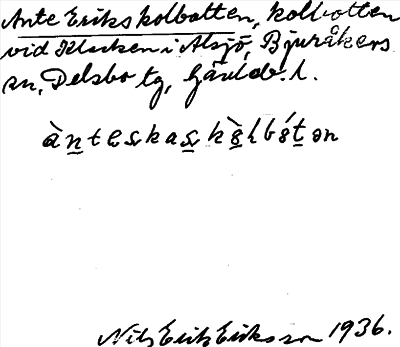 Ante Erikskolbotten, kolbotten
vid Klacken i Alsjö, Bjuråkers
sn, Delsbo tg, Gävleb. l.
Nils Erik Eriksson 1936.